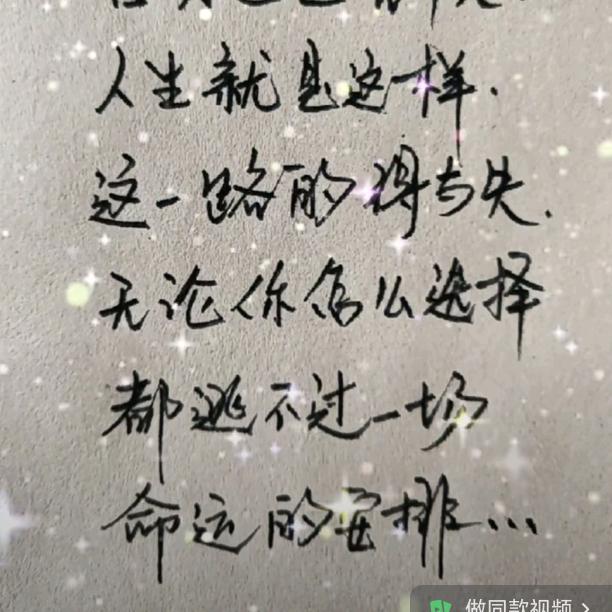 人生就是这样.
这一路的得与失.
无论你怎么选择
都逃不过一场
命运的安排...
做同款视频 >